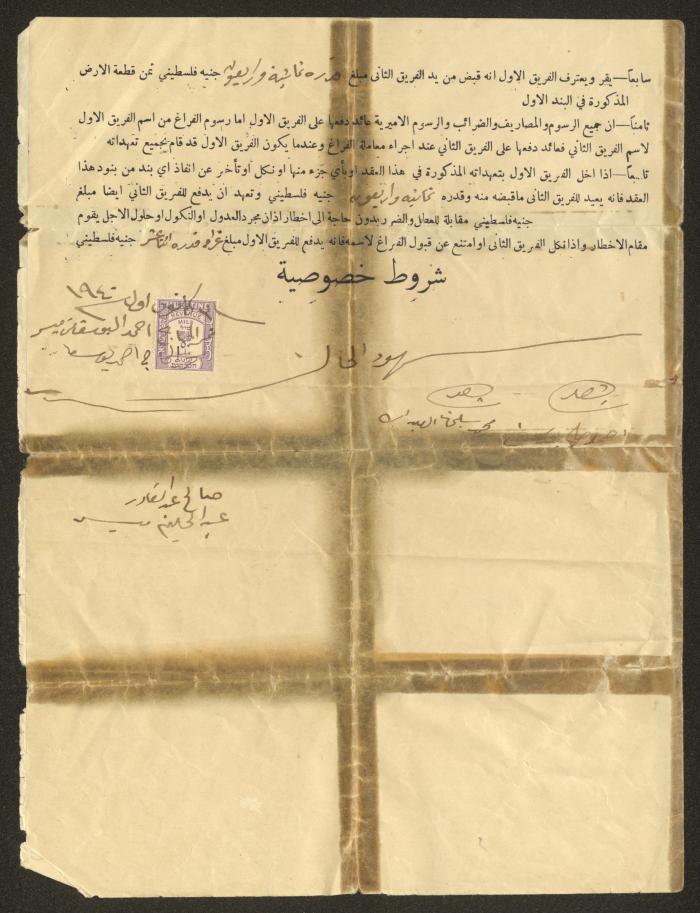 سابعاً — يقر ويعترف الفريق الاول انه قبض من يد الفريق الثانى مبلغ قدره ثمانية واربعون جنيه فلسطيني ثمن قطعة الارض
المذكورة في البند الاول
ثامناً — ان جميع الرسوم والمصاريف والضرائب والرسوم الاميرية عائد دفعها على الفريق الاول اما رسوم الفراغ من اسم الفريق الاول
لاسم الفريق الثاني فعائد دفعها على الفريق الثاني عند اجراء معاملة الفراغ وعندما يكون الفريق الاول قد قام بجميع تعهداته
تاسعاً — اذا اخل الفريق الاول بتعهداته المذكورة في هذا العقد او بأي جزء منها او نكل او تأخر عن انفاذ اي بند من بنود هذا
العقد فانه يعيد للفريق الثانى ماقبضه منه وقدره ثمانية واربعون جنيه فلسطيني وتعهد ان يدفع للفريق الثاني ايضا مبلغ
جنيه فلسطيني مقابلة للعطل والضرر بدون حاجة الى اخطار اذان مجرد العدول او النكول او حلول الاجل يقوم
مقام الاخطار واذا نكل الفريق الثانى او امتنع عن قبول الفراغ لاسمه فانه يدفع للفريق الاول مبلغ قدره اثنا عشر جنيه فلسطيني
شروط خصوصية
كانون اول ١٩٤٠
احمد
PALESTINE
REVENUE
MILS
شهود الحال
شهد
شهد
محمد
صالح عبد القادر
عبد الحليم